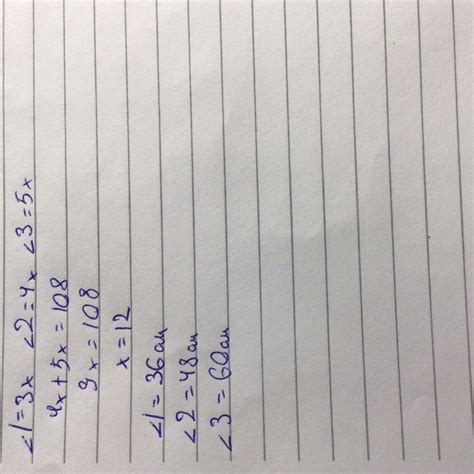 ∠1=3x ∠2=4x ∠3=5x
4x+5x=108
9x=108
x=12
∠1=36см
∠2=48см
∠3=60см